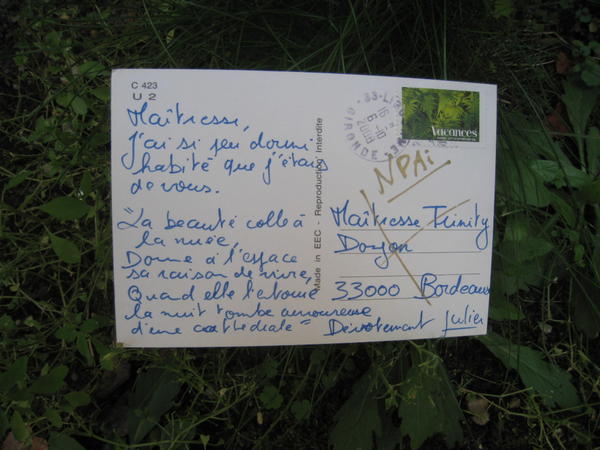 C 423
U 2
Maîtresse,
j'ai si peu dormi
habité que j'étais
de vous.
"La beauté colle à
la nuée,
Donne à l'espace
sa raison de vivre,
Quand elle l'étonne
la nuit tombe amoureuse
d'une cathédrale"
Dévotement Julien
Made in EEC - Reproduction Interdite
33-LI
GIRONDE
16
6-10
2009
Vacances
NPAi
Maîtresse Trinity
Donjon
33000 Bordeaux